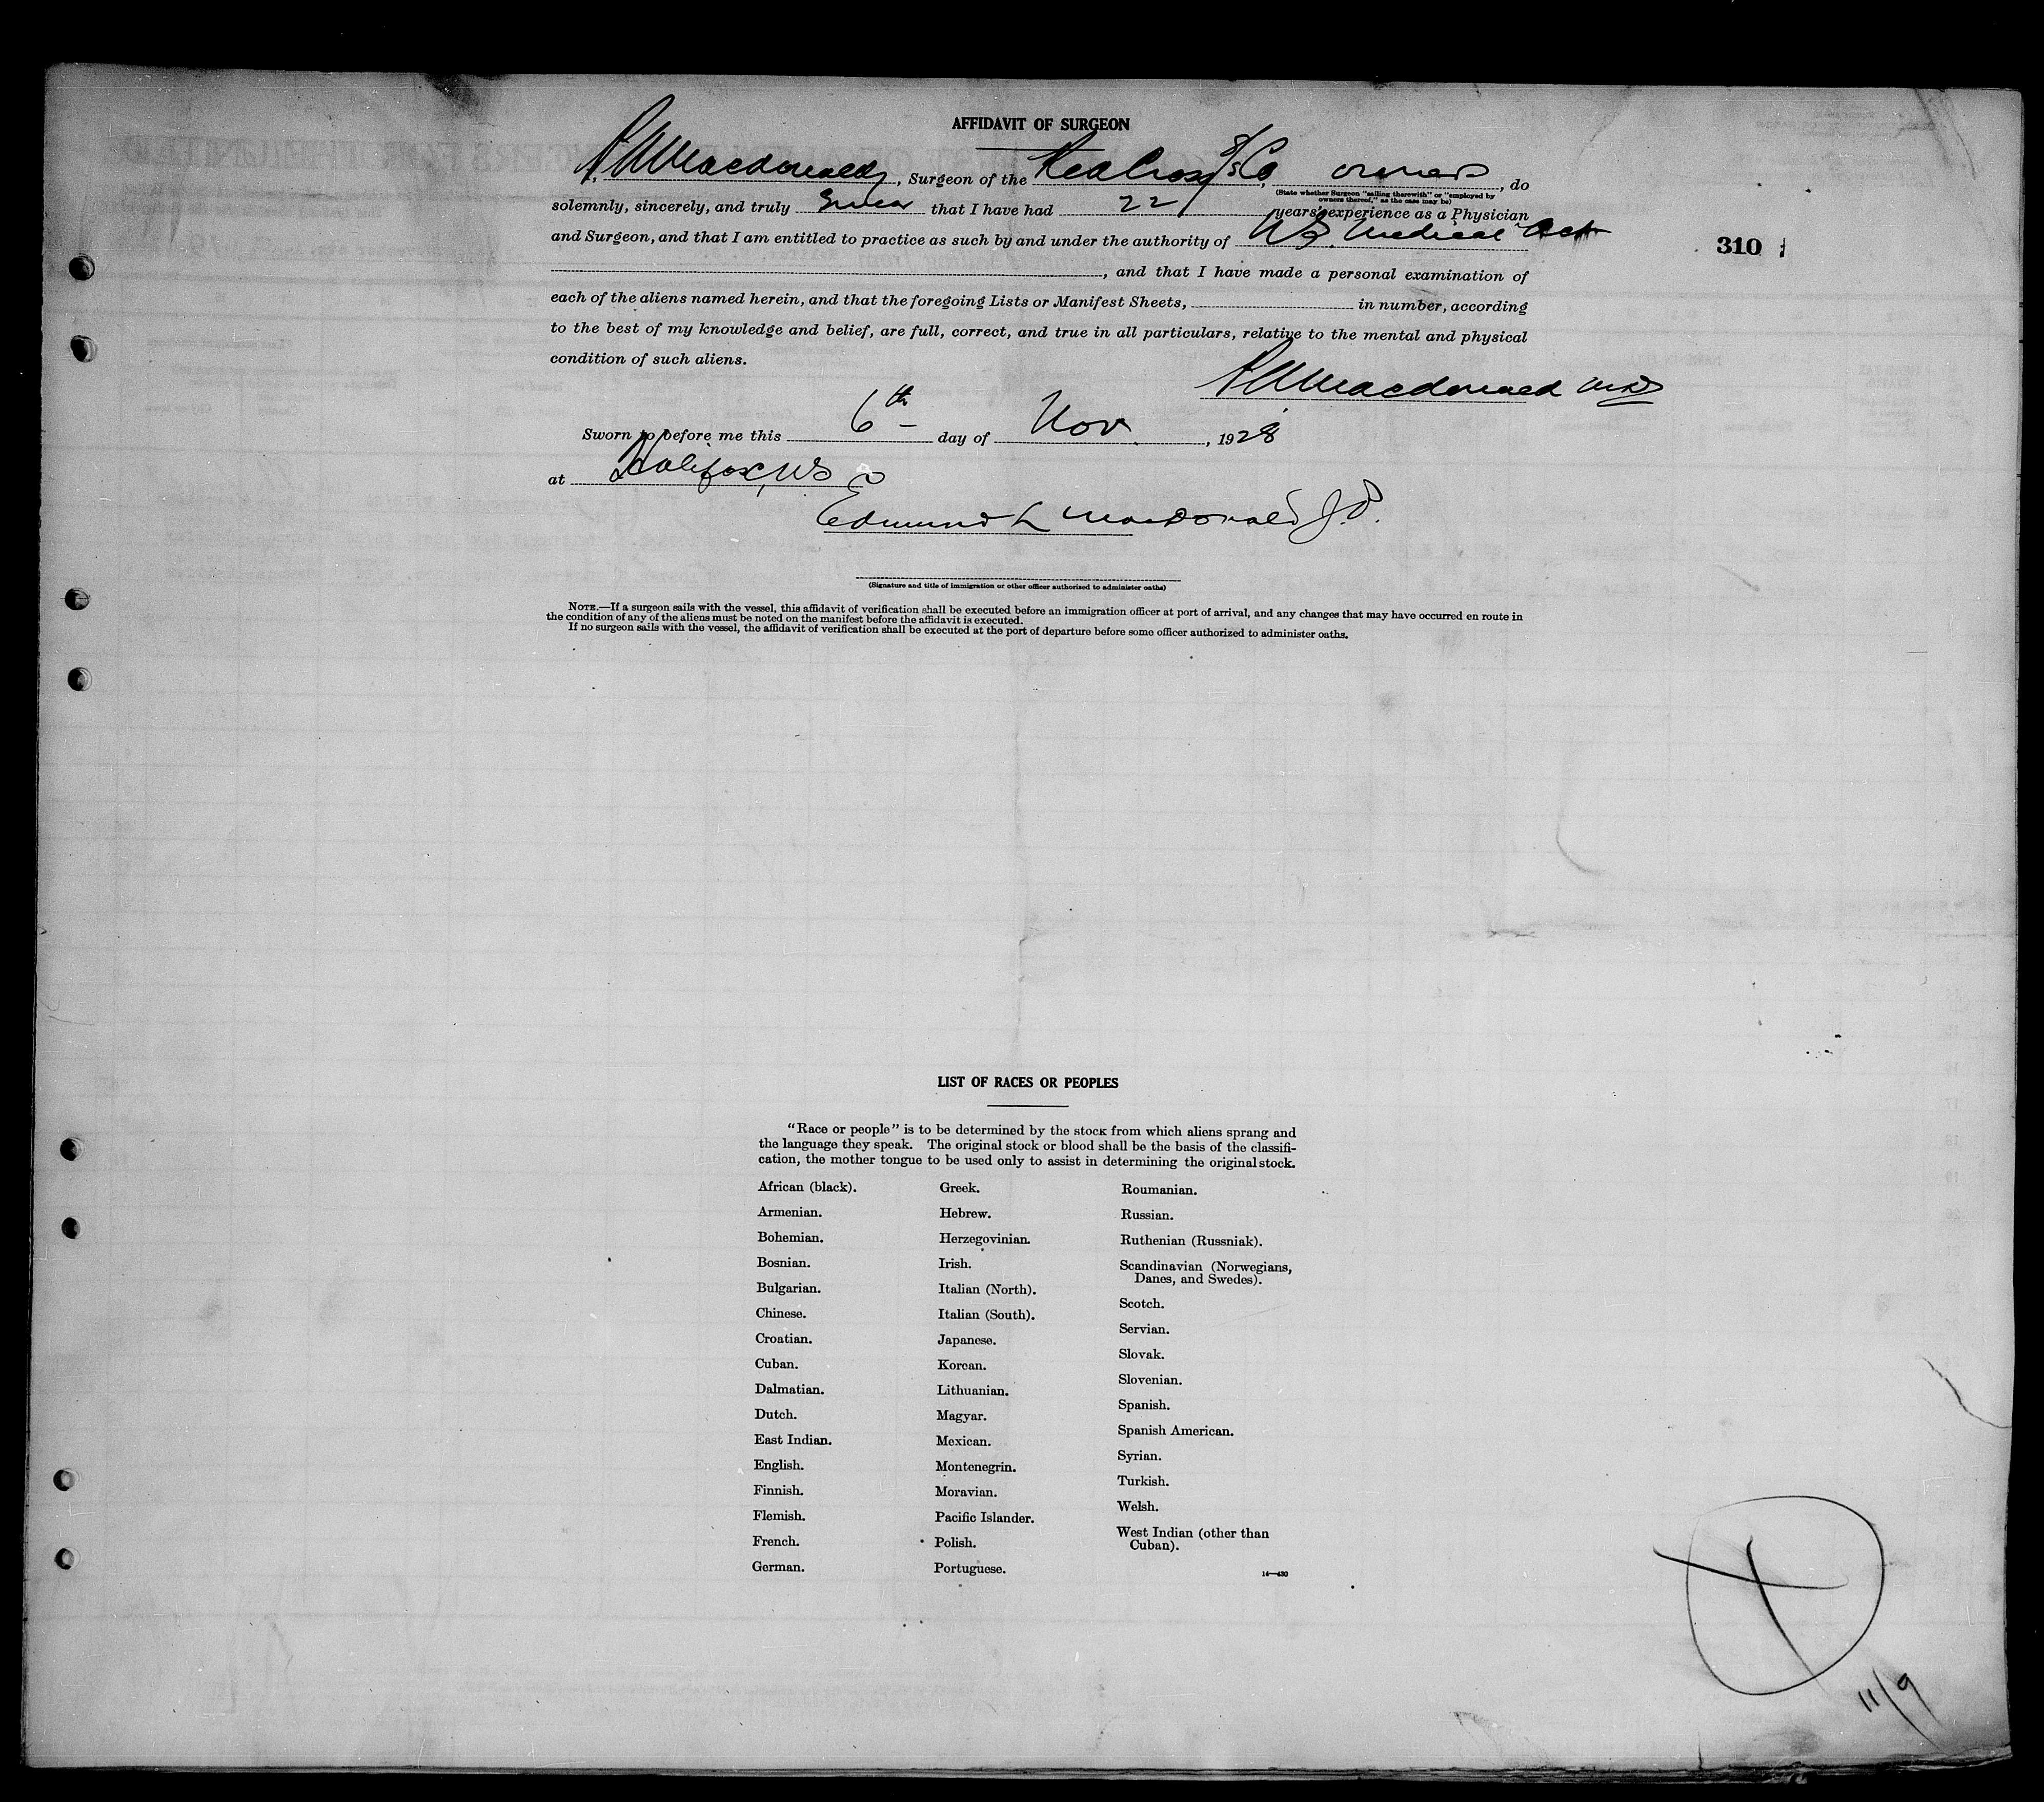 AFFIDAVIT OF SURGEON
Macdonald, Surgeon of the Red Cross S/S Co, owners, do
(State whether Surgeon "sailing therewith" or "employed by owners thereof," as the case may be)
solemnly, sincerely, and truly swear that I have had 22 years' experience as a Physician
and Surgeon, and that I am entitled to practice as such by and under the authority of NS. Medical Act
310
, and that I have made a personal examination of
each of the aliens named herein, and that the foregoing Lists or Manifest Sheets, in number, according
to the best of my knowledge and belief, are full, correct, and true in all particulars, relative to the mental and physical
condition of such aliens.
Macdonald MD
Sworn to before me this 6th day of Nov. , 1928
at Halifax, NS
Edmund L MacDonald J.P.
(Signature and title of immigration or other officer authorized to administer oaths)
NOTE.—If a surgeon sails with the vessel, this affidavit of verification shall be executed before an immigration officer at port of arrival, and any changes that may have occurred en route in
the condition of any of the aliens must be noted on the manifest before the affidavit is executed.
If no surgeon sails with the vessel, the affidavit of verification shall be executed at the port of departure before some officer authorized to administer oaths.
LIST OF RACES OR PEOPLES
"Race or people" is to be determined by the stock from which aliens sprang and
the language they speak. The original stock or blood shall be the basis of the classifi-
cation, the mother tongue to be used only to assist in determining the original stock.
African (black).
Armenian.
Bohemian.
Bosnian.
Bulgarian.
Chinese.
Croatian.
Cuban.
Dalmatian.
Dutch.
East Indian.
English.
Finnish.
Flemish.
French.
German.
Greek.
Hebrew.
Herzegovinian.
Irish.
Italian (North).
Italian (South).
Japanese.
Korean.
Lithuanian.
Magyar.
Mexican.
Montenegrin.
Moravian.
Pacific Islander.
Polish.
Portuguese.
Roumanian.
Russian.
Ruthenian (Russniak).
Scandinavian (Norwegians,
Danes, and Swedes).
Scotch.
Servian.
Slovak.
Slovenian.
Spanish.
Spanish American.
Syrian.
Turkish.
Welsh.
West Indian (other than
Cuban).
14—430
11/9